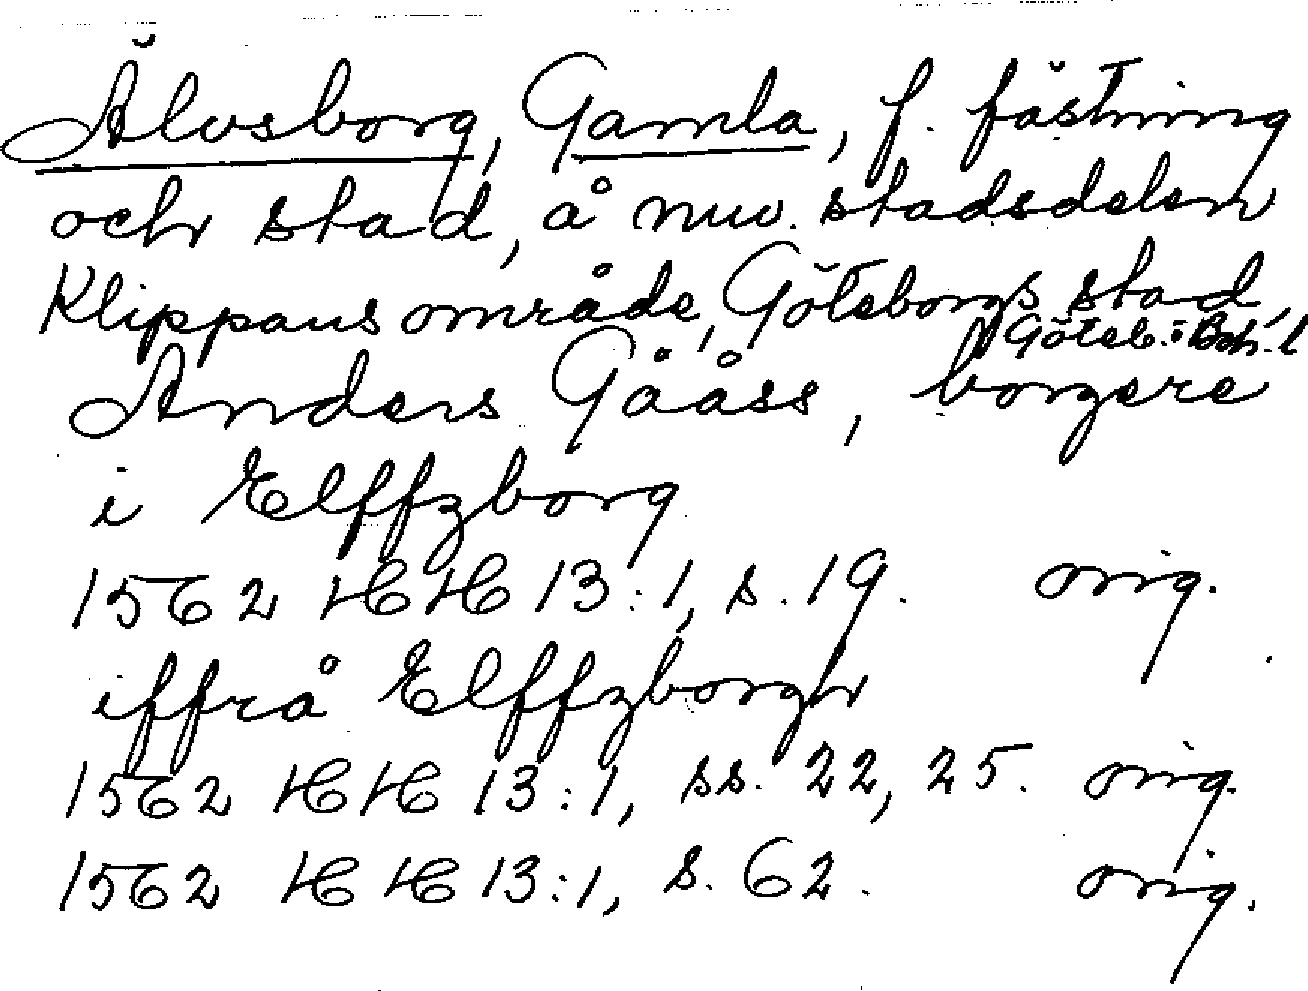 Älvsborg, Gamla, f. fästning
och stad, å nuv. stadsdelen
Klippans område, Göteborgs stad,
Göteb. o. Boh. l
Anders Gååss, borgere
i Elffzborg
1562 HH 13:1, s. 19. orig.
iffrå Elffzborgh
1562 HH 13:1, ss. 22, 25. orig.
1562 HH 13:1, s. 62. orig.